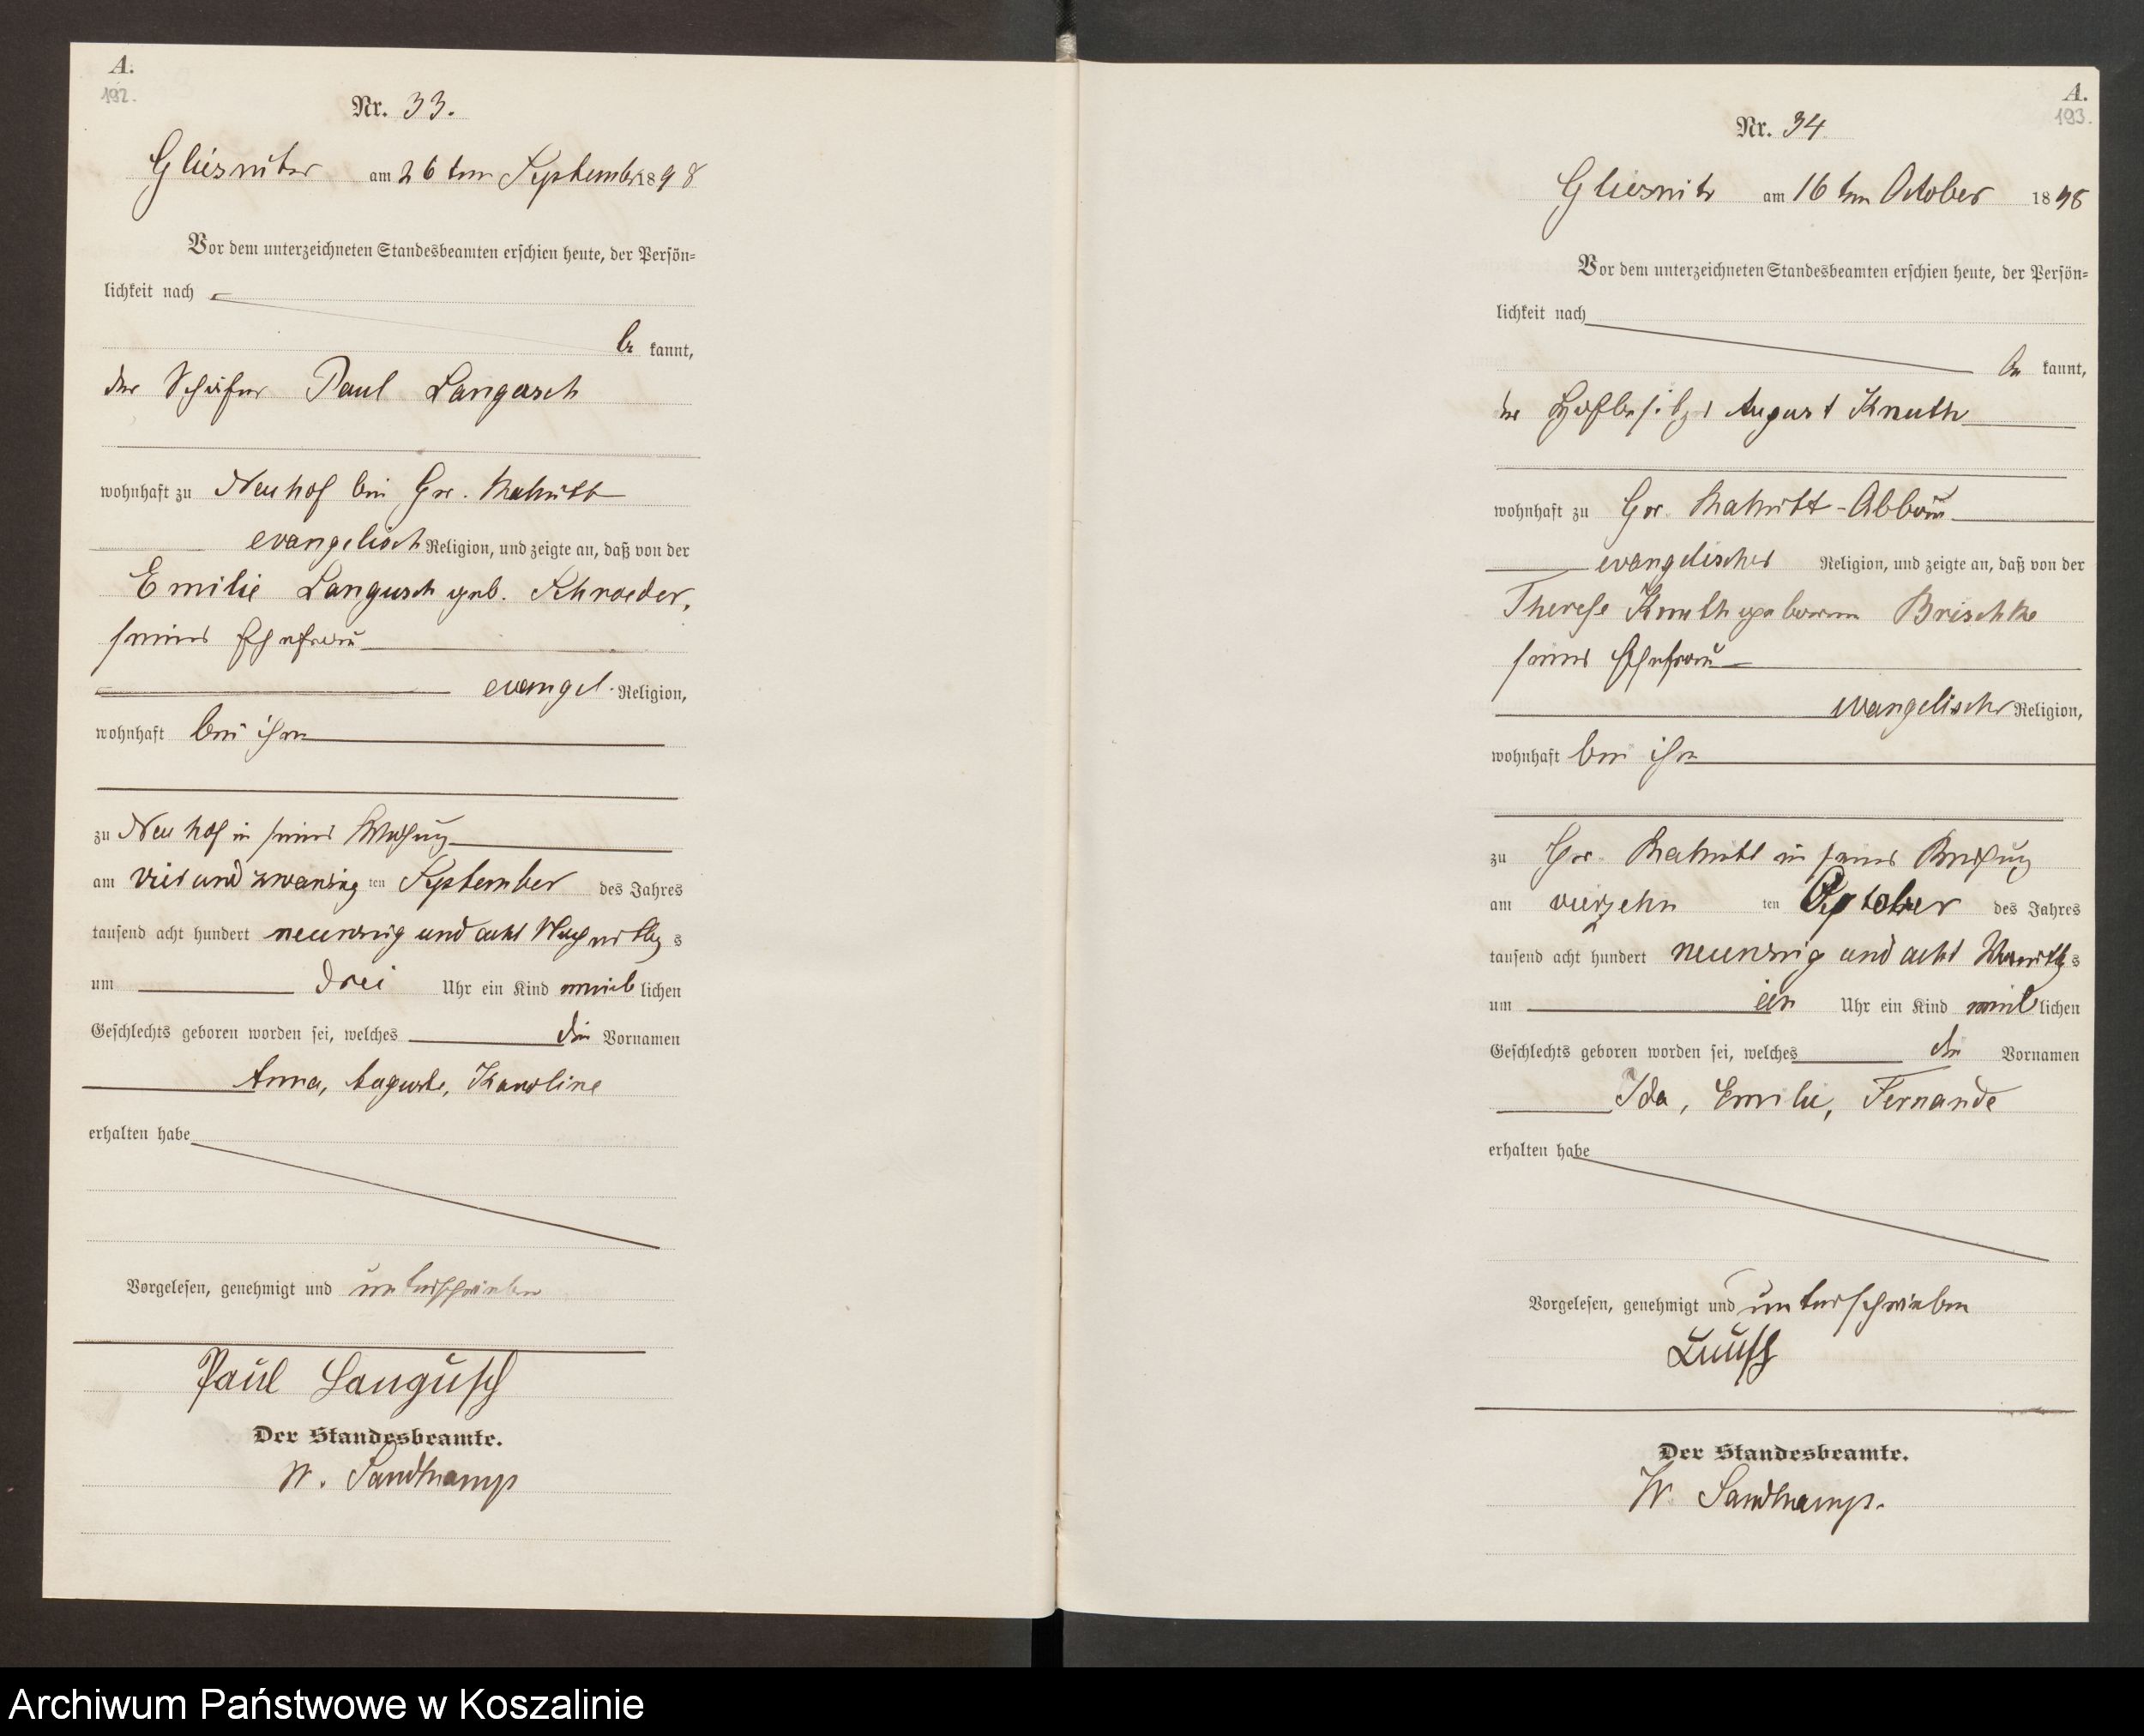 A.
192.
Nr. 33.
Gliesnitz am 26ten September 1898
Vor dem unterzeichneten Standesbeamten erschien heute, der Persön-
lichkeit nach
be kannt,
der Schäfer Paul Langusch
wohnhaft zu Neuhof bei Gr.
evangelisch Religion, und zeigte an, daß von der
Emilie Langusch geb. Schroeder,
seiner Ehefrau
evangel. Religion,
wohnhaft bei ihm
zu Neuhof in seiner Wohnung
am vier und zwanzig ten September des Jahres
tausend acht hundert neunzig und acht Nachmittags
um drei Uhr ein Kind weiblichen
Geschlechts geboren worden sei, welches die Vornamen
Anna, Auguste, Karoline
erhalten habe
Vorgelesen, genehmigt und unterschrieben
Paul Langusch
Der Standesbeamte.
W. Sandkamp
A.
193.
Nr. 34
Gliesnitz am 16ten October 1898
Vor dem unterzeichneten Standesbeamten erschien heute, der Persön-
lichkeit nach
be kannt,
der Hofbesitzer August Knuth
wohnhaft zu Gr. -Abbau
evangelischer Religion, und zeigte an, daß von der
Therese Knuth geborenen Brischke
seiner Ehefrau
evangelischer Religion,
wohnhaft bei ihm
zu Gr. in seiner
am vierzehn ten October des Jahres
tausend acht hundert neunzig und acht
um ein Uhr ein Kind weiblichen
Geschlechts geboren worden sei, welches die Vornamen
Ida, Emilie, Fernande
erhalten habe
Vorgelesen, genehmigt und unterschrieben
Der Standesbeamte.
W. Sandkamp.
Archiwum Państwowe w Koszalinie